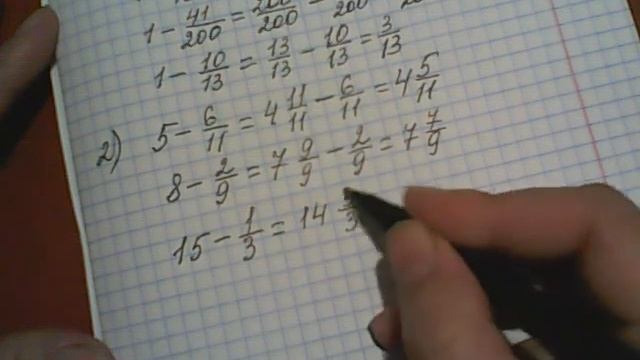 1 - 41/200 = 200/200 - 200
1 - 10/13 = 13/13 - 10/13 = 3/13
2) 5 - 6/11 = 4 11/11 - 6/11 = 4 5/11
8 - 2/9 = 7 9/9 - 2/9 = 7 7/9
15 - 1/3 = 14 3